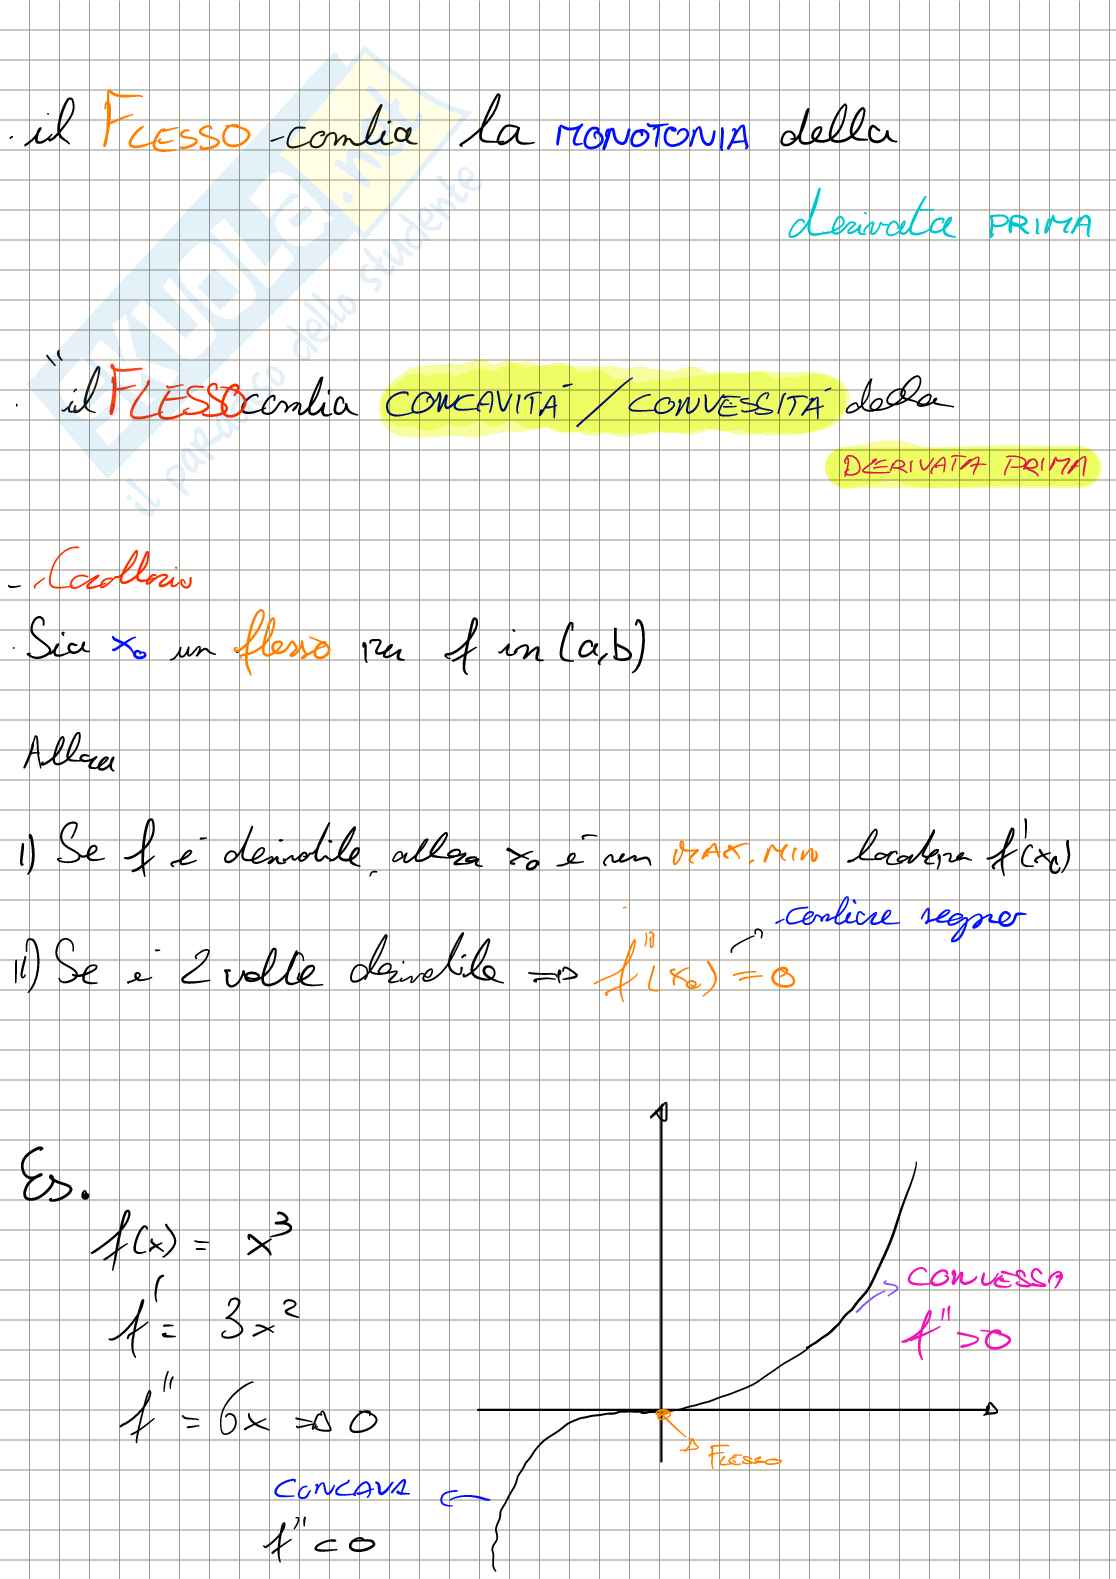 . il FLESSO - cambia la MONOTONIA della
derivata PRIMA
" il FLESSO cambia CONCAVITÀ / CONVESSITÀ della
DERIVATA PRIMA
- . Corollario
. Sia x₀ un flesso per f in (a,b)
Allora
1) Se f è derivabile, allora x₀ è un MAX. MIN locale per f'(x₀)
cambiare segno
11) Se è 2 volte derivabile => f''(x₀) = 0
Es.
f(x) = x³
f' = 3x²
f'' = 6x => 0
CONVESSA
f'' > 0
FLESSO
CONCAVA
f'' < 0
SKUOLA.net
il paradiso dello studente